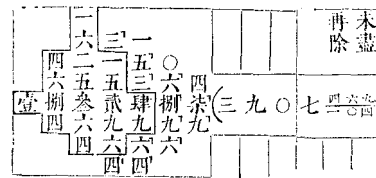 未盡
再除
三九〇七
四柒九
〇六捌九六
一五三肆九六四
三一五貳九六四
一六二五叁六四
四六捌四
壹